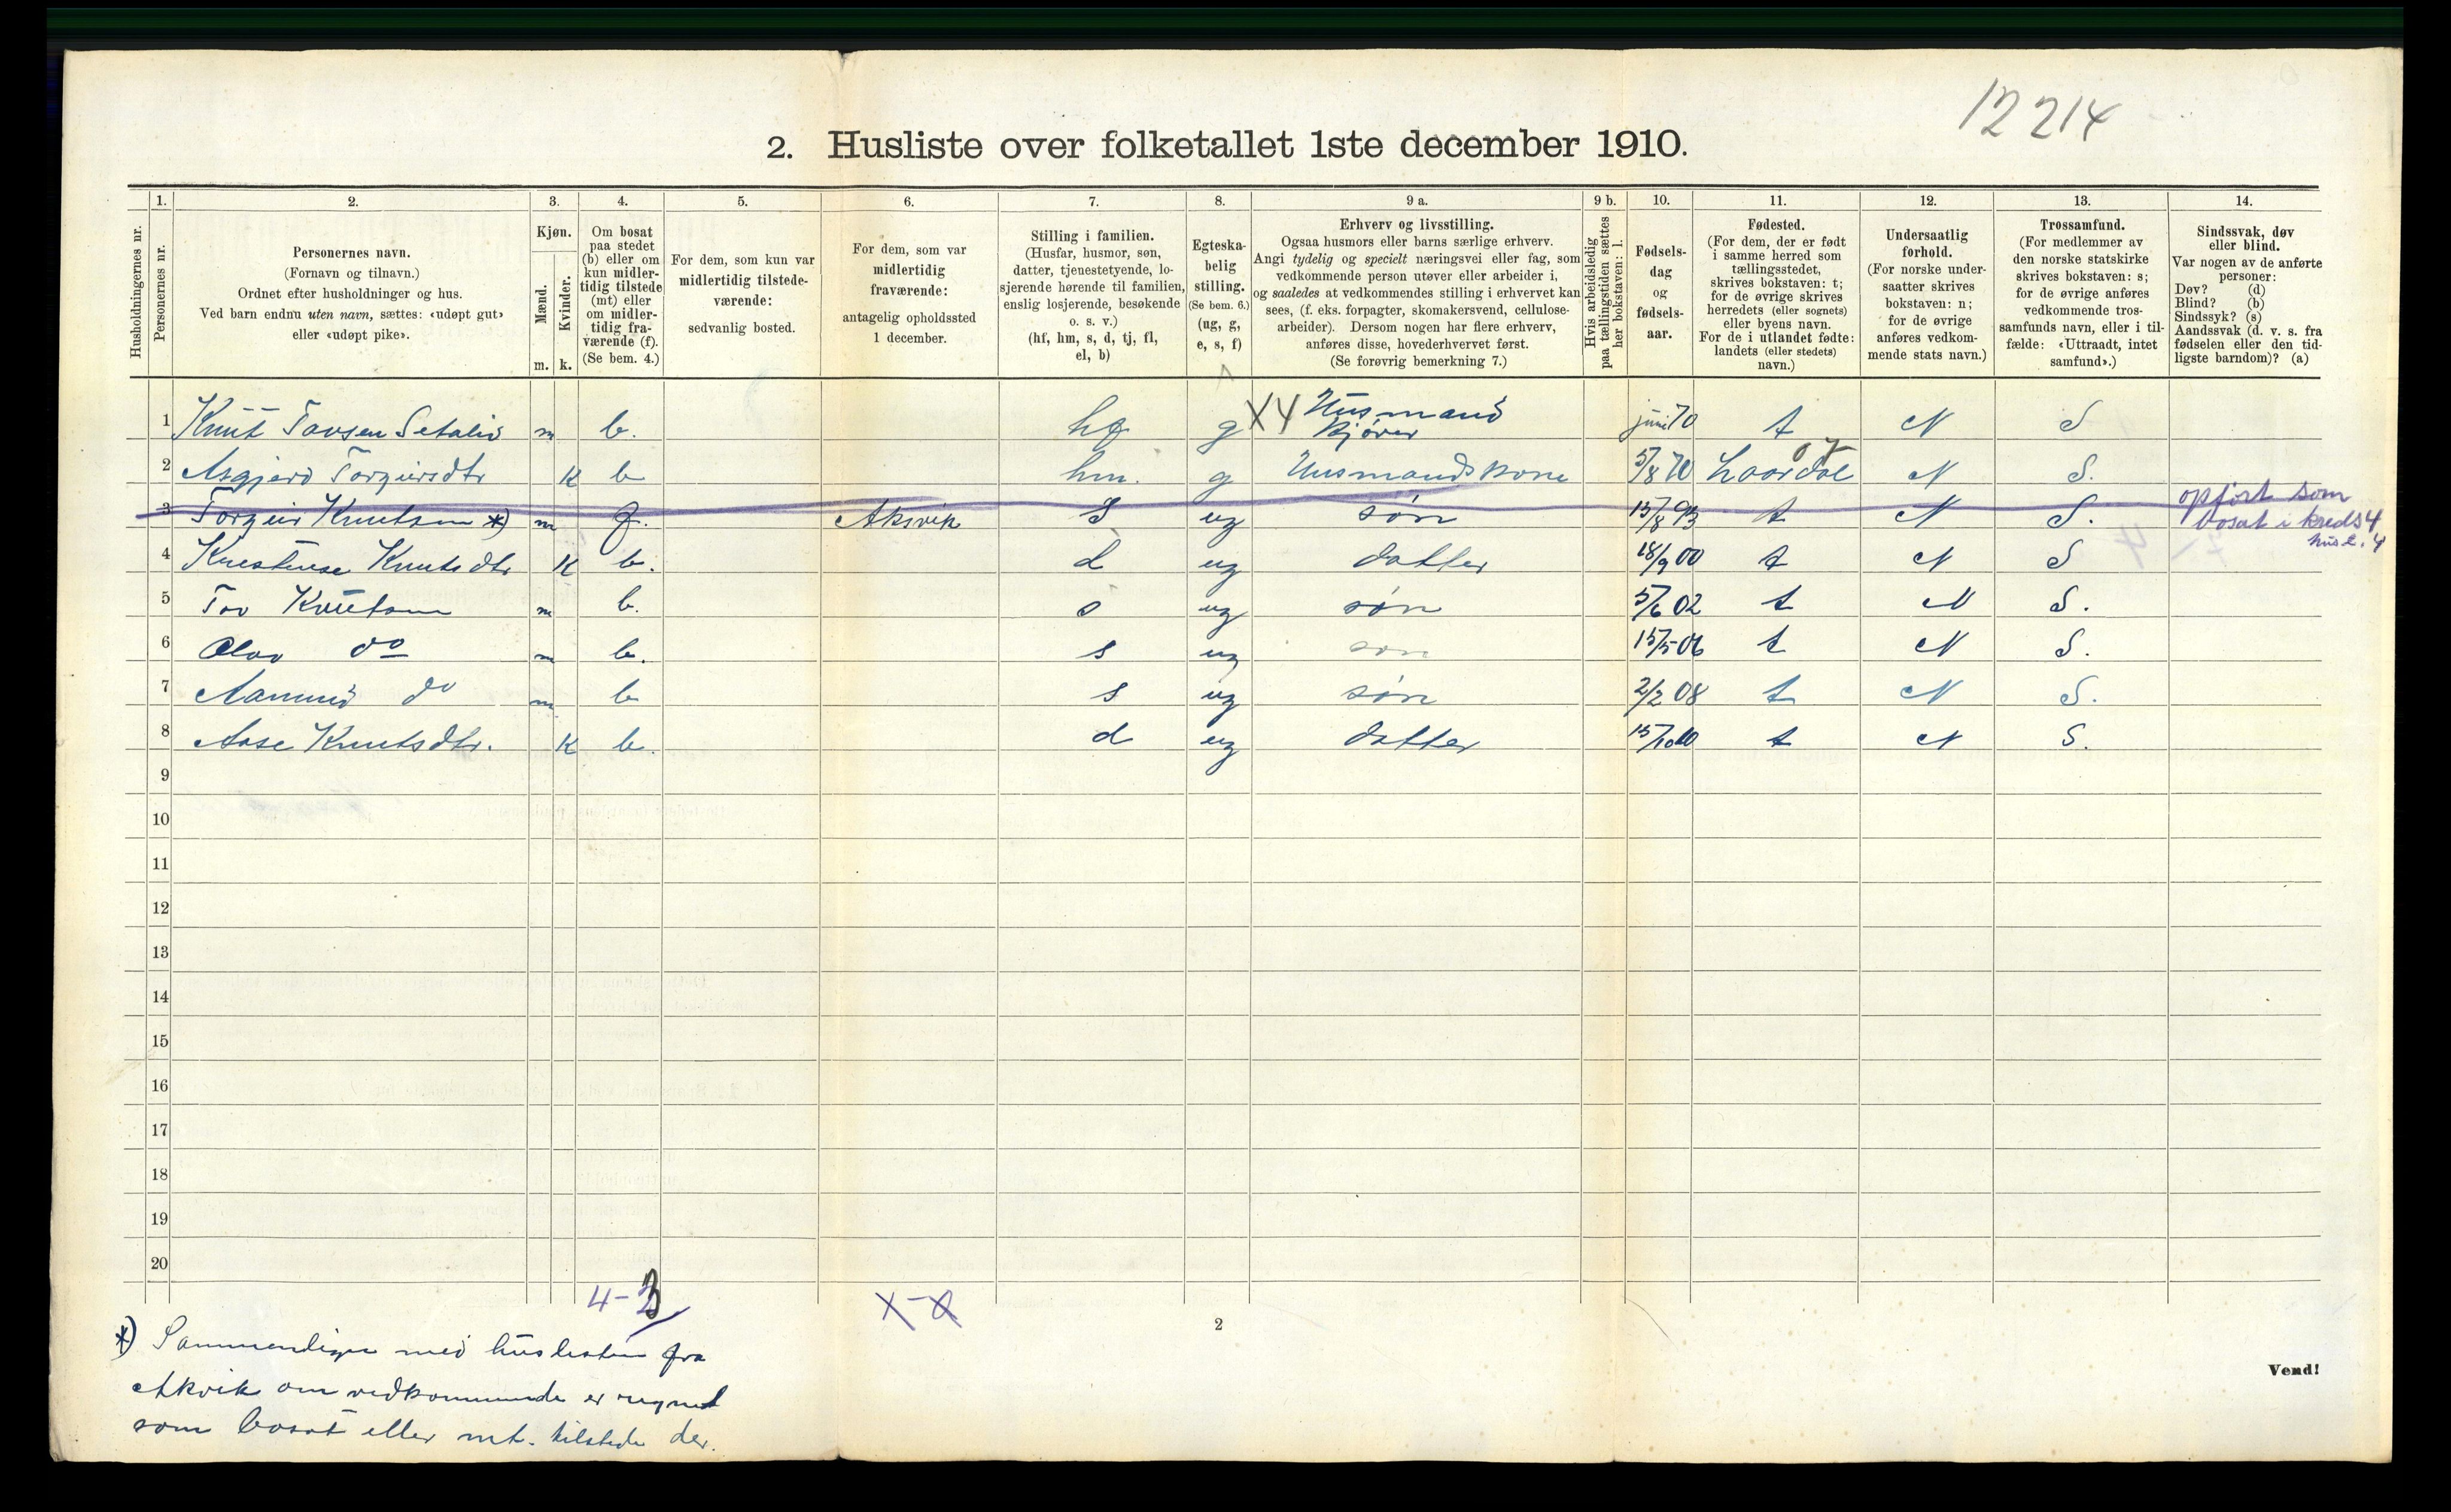 12214
2. Husliste over folketallet 1ste december 1910.
1. 2. 3. 4. 5. 6. 7. 8. 9 a. 9 b. 10. 11. 12. 13. 14.
Husholdningernes nr.
Personernes nr.
Personernes navn.
(Fornavn og tilnavn.)
Ordnet efter husholdninger og hus.
Ved barn endnu uten navn, sættes: «udøpt gut»
eller «udøpt pike».
Kjøn.
Mænd.
Kvinder.
m. k.
Om bosat
paa stedet
(b) eller om
kun midler-
tidig tilstede
(mt) eller
om midler-
tidig fra-
værende (f).
(Se bem. 4.)
For dem, som kun var
midlertidig tilstede-
værende:
sedvanlig bosted.
For dem, som var
midlertidig
fraværende:
antagelig opholdssted
1 december.
Stilling i familien.
(Husfar, husmor, søn,
datter, tjenestetyende, lo-
sjerende hørende til familien,
enslig losjerende, besøkende
o. s. v.)
(hf, hm, s, d, tj, fl,
el, b)
Egteska-
belig
stilling.
(Se bem. 6.)
(ug, g,
e, s, f)
Erhverv og livsstilling.
Ogsaa husmors eller barns særlige erhverv.
Angi tydelig og specielt næringsvei eller fag, som
vedkommende person utøver eller arbeider i,
og saaledes at vedkommendes stilling i erhvervet kan
sees, (f. eks. forpagter, skomakersvend, cellulose-
arbeider). Dersom nogen har flere erhverv,
anføres disse, hovederhvervet først.
(Se forøvrig bemerkning 7.)
Hvis arbeidsledig
paa tællingstiden sættes
her bokstaven: l.
Fødsels-
dag
og
fødsels-
aar.
Fødested.
(For dem, der er født
i samme herred som
tællingsstedet,
skrives bokstaven: t;
for de øvrige skrives
herredets (eller sognets)
eller byens navn.
For de i utlandet fødte:
landets (eller stedets)
navn.)
Undersaatlig
forhold.
(For norske under-
saatter skrives
bokstaven: n;
for de øvrige
anføres vedkom-
mende stats navn.)
Trossamfund.
(For medlemmer av
den norske statskirke
skrives bokstaven: s;
for de øvrige anføres
vedkommende tros-
samfunds navn, eller i til-
fælde: «Uttraadt, intet
samfund».)
Sindssvak, døv
eller blind.
Var nogen av de anførte
personer:
Døv? (d)
Blind? (b)
Sindssyk? (s)
Aandssvak (d. v. s. fra
fødselen eller den tid-
ligste barndom)? (a)
1 Knut Tovsen Setalid m b. hf g X4 Husmand Kjører juni 70 t N S
2 Asgjerd Torgeirsdtr k b hm. g Husmandskone 5/8 70 Laardal 07 N S.
3 Torgeir Knutsen *) m f. Aksvik S ug søn 15/8 93 t N S. opført som bosat i kreds 4 husl. 4
4 Knutsdtr k b. d ug datter 18/9 00 t N S
5 Tov Knutsen m b. s ug søn 5/6 02 t N S.
6 Olav do m b. s ug søn 15/5 06 t N S.
7 Aamund do m b s ug søn 2/2 08 t N S.
8 Aase Knutsdtr. k b. d ug datter 15/10 10 t N S.
9
10
11
12
13
14
15
16
17
18
19
20
4-3
X-X
2
*) Sammenlign med huslisten fra
Akvik om vedkommende er regnet
som bosat eller mt. tilstede der.
Vend!